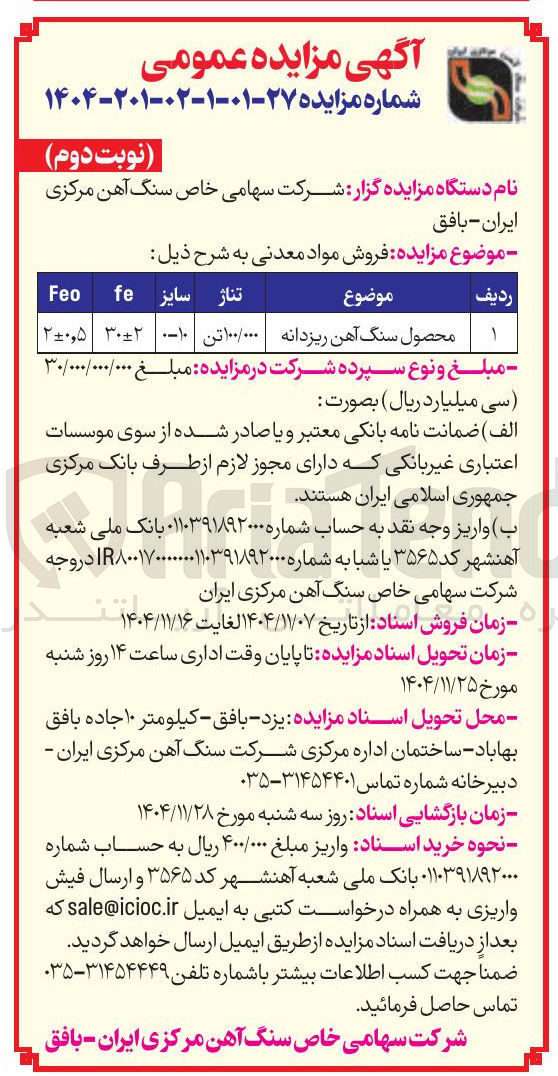 آگهی مزایده عمومی
شماره مزایده ۲۷-۰۱-۱-۰۲-۲۰۱-۱۴۰۴
(نوبت دوم)
نام دستگاه مزایده گزار: شرکت سهامی خاص سنگ آهن مرکزی
ایران-بافق
-موضوع مزایده: فروش مواد معدنی به شرح ذیل:
ردیف موضوع تناژ سایز fe Feo
۱ محصول سنگ آهن ریزدانه ۱۰۰/۰۰۰تن ۱۰-۰ ۳۰±۲ ۲±۰,۵
-مبلغ و نوع سپرده شرکت در مزایده: مبلغ ۳۰/۰۰۰/۰۰۰/۰۰۰
(سی میلیارد ریال) بصورت:
الف) ضمانت نامه بانکی معتبر و یا صادر شده از سوی موسسات
اعتباری غیربانکی که دارای مجوز لازم ازطرف بانک مرکزی
جمهوری اسلامی ایران هستند.
ب) واریز وجه نقد به حساب شماره ۰۱۱۰۳۹۱۸۹۲۰۰۰ بانک ملی شعبه
آهنشهر کد ۳۵۶۵ یا شبا به شماره IR۸۰۰۱۷۰۰۰۰۰۰۰۱۱۰۳۹۱۸۹۲۰۰۰ دروجه
شرکت سهامی خاص سنگ آهن مرکزی ایران
-زمان فروش اسناد: ازتاریخ ۱۴۰۴/۱۱/۰۷ لغایت ۱۴۰۴/۱۱/۱۶
-زمان تحویل اسناد مزایده: تا پایان وقت اداری ساعت ۱۴ روز شنبه
مورخ ۱۴۰۴/۱۱/۲۵
-محل تحویل اسناد مزایده: یزد-بافق-کیلومتر ۱۰ جاده بافق
بهاباد-ساختمان اداره مرکزی شرکت سنگ آهن مرکزی ایران -
دبیرخانه شماره تماس ۳۱۴۵۴۴۰۱-۰۳۵
-زمان بازگشایی اسناد: روز سه شنبه مورخ ۱۴۰۴/۱۱/۲۸
-نحوه خرید اسناد: واریز مبلغ ۴۰۰/۰۰۰ ریال به حساب شماره
۰۱۱۰۳۹۱۸۹۲۰۰۰ بانک ملی شعبه آهنشهر کد ۳۵۶۵ و ارسال فیش
واریزی به همراه درخواست کتبی به ایمیل sale@icioc.ir که
بعداز دریافت اسناد مزایده ازطریق ایمیل ارسال خواهد گردید.
ضمناً جهت کسب اطلاعات بیشتر باشماره تلفن ۳۱۴۵۴۴۴۹-۰۳۵
تماس حاصل فرمائید.
شرکت سهامی خاص سنگ آهن مرکزی ایران-بافق